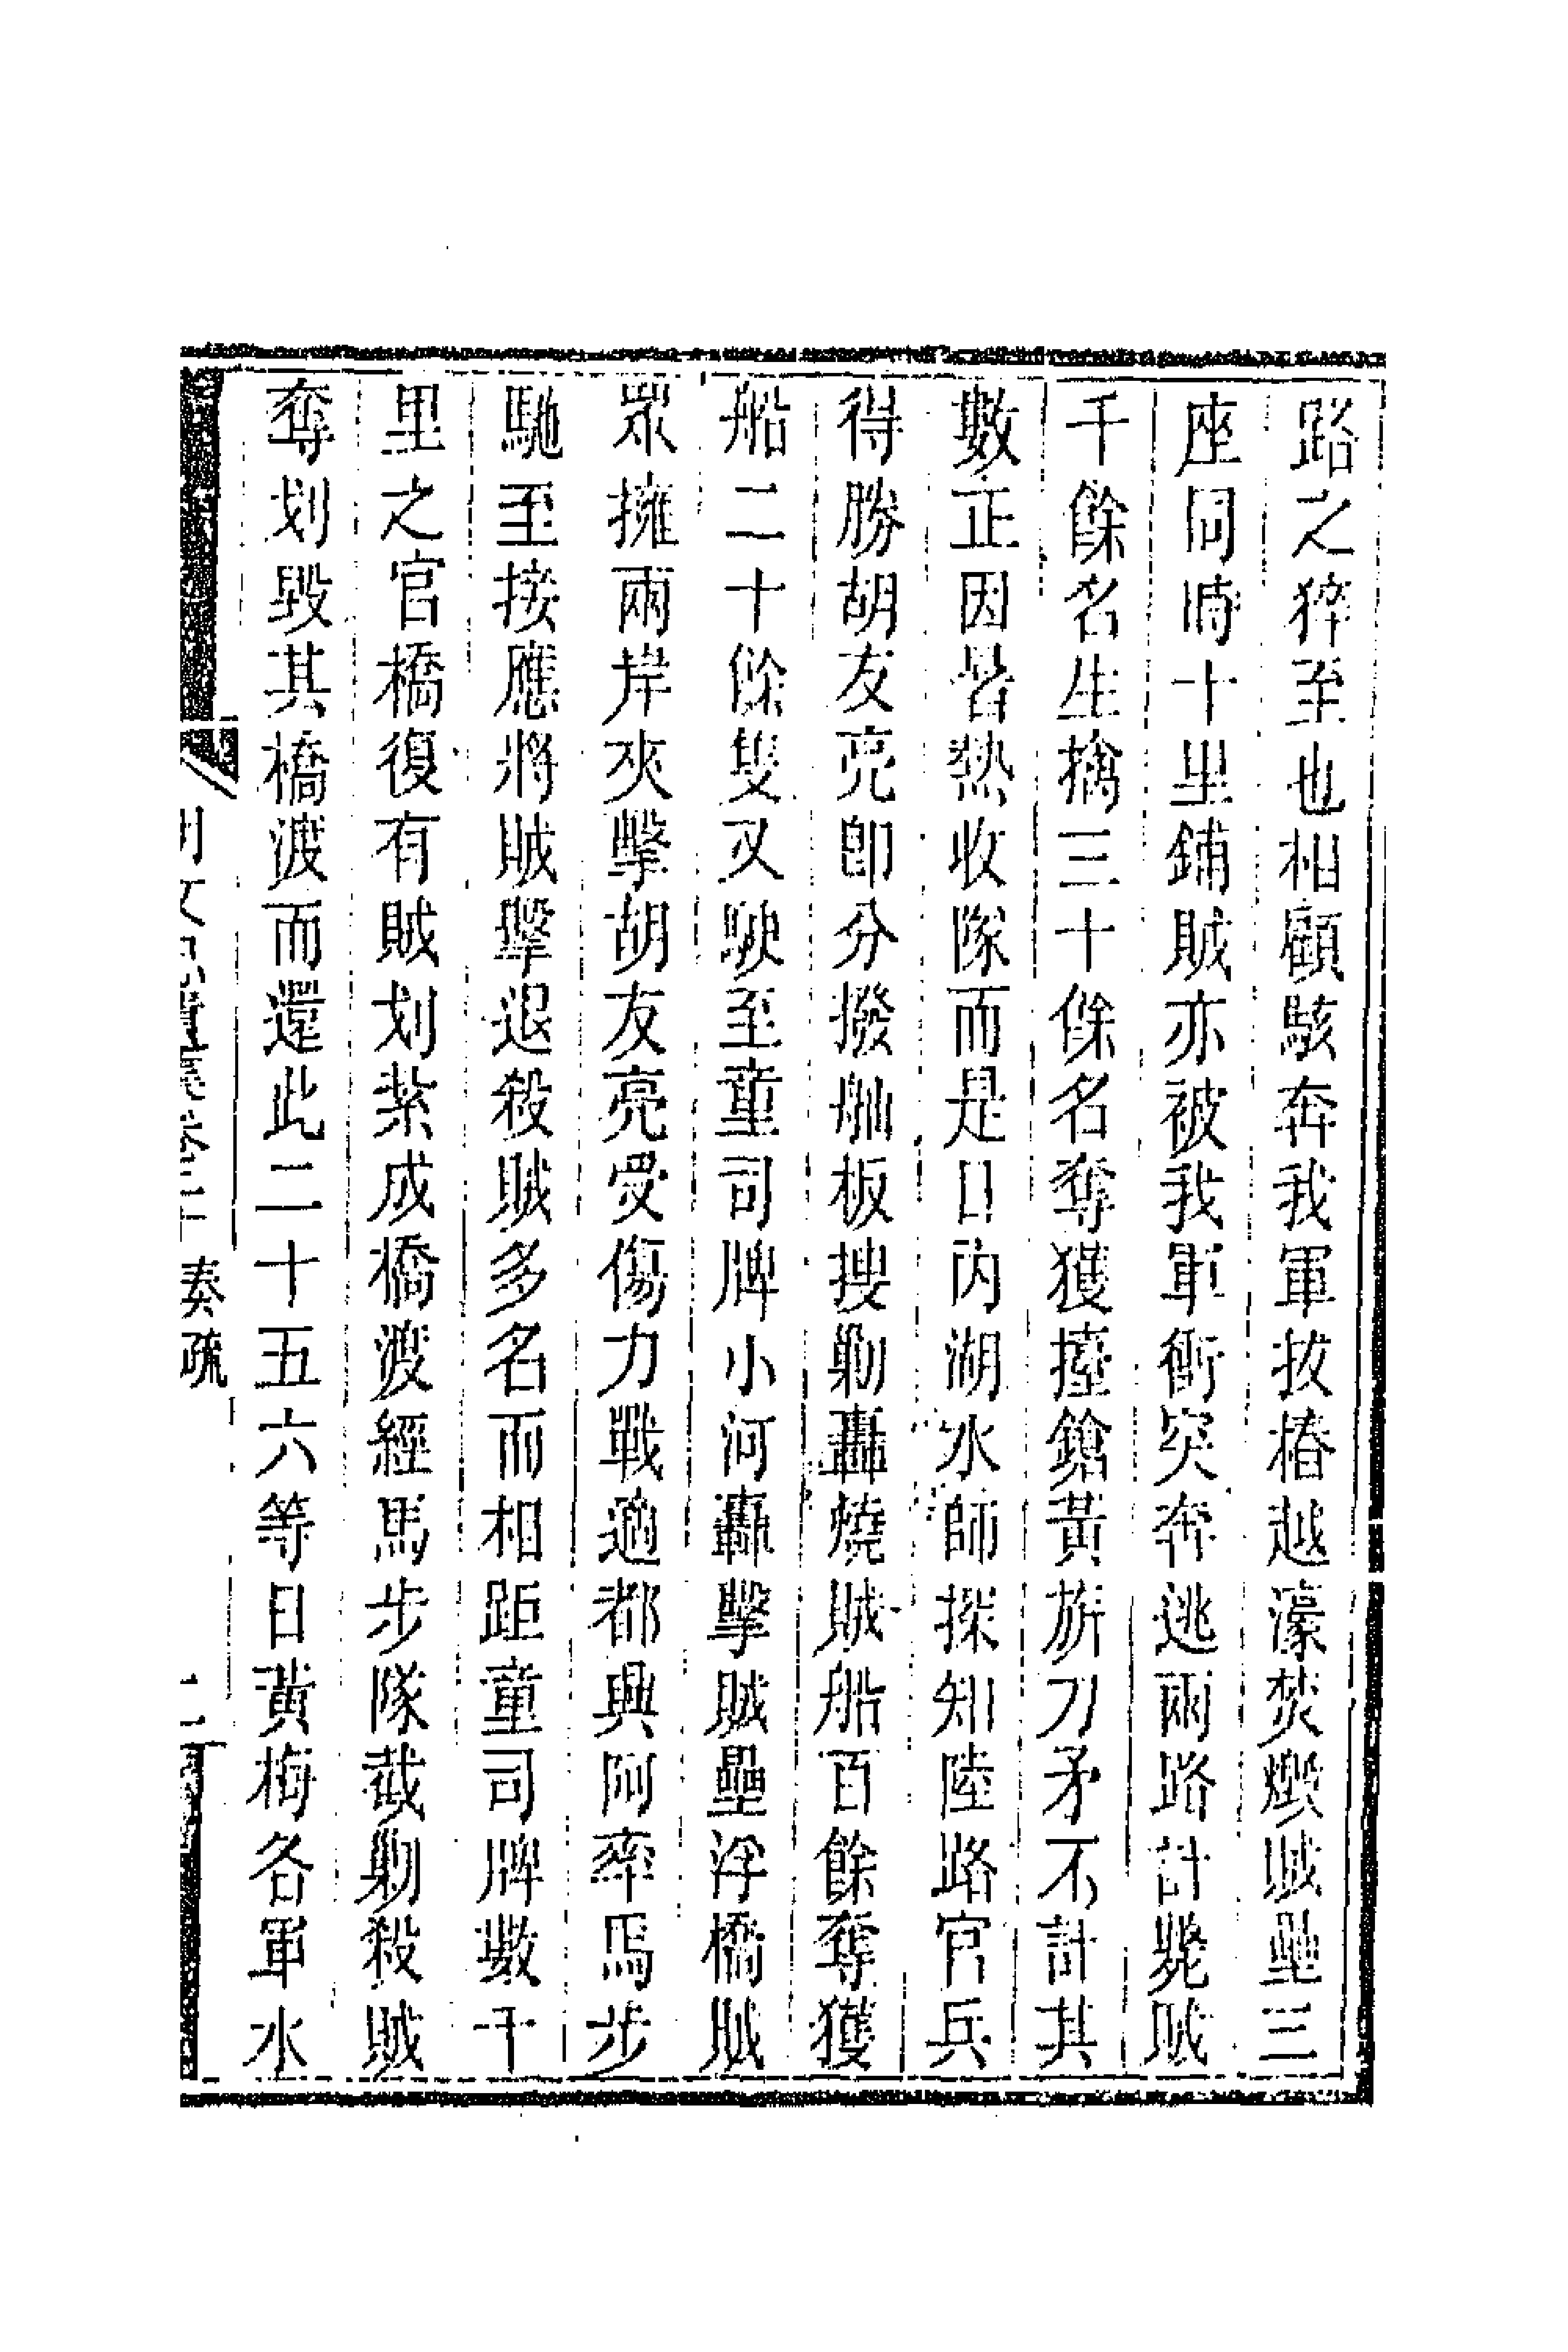 路之猝至也相顧駭奔我軍拔樁越濠焚燬賊壘三
座同時十里鋪賊亦被我軍衝突奔逃兩路計斃賊
千餘名生擒三十餘名奪獲擡鎗黃旂刀矛不計其
數正因暑熱收隊而是日內湖水師探知陸路官兵
得勝胡友亮卽分撥舢板搜剿轟燒賊船百餘奪獲
船二十餘隻又駛至童司牌小河轟擊賊壘浮橋賊
眾擁兩岸夾擊胡友亮受傷力戰適都興阿率馬步
馳至接應將賊擊退殺賊多名而相距童司牌數十
里之官橋復有賊划紮成橋渡經馬步隊截剿殺賊
奪划毀其橋渡而還此二十五六等日黃梅各軍水
奏疏